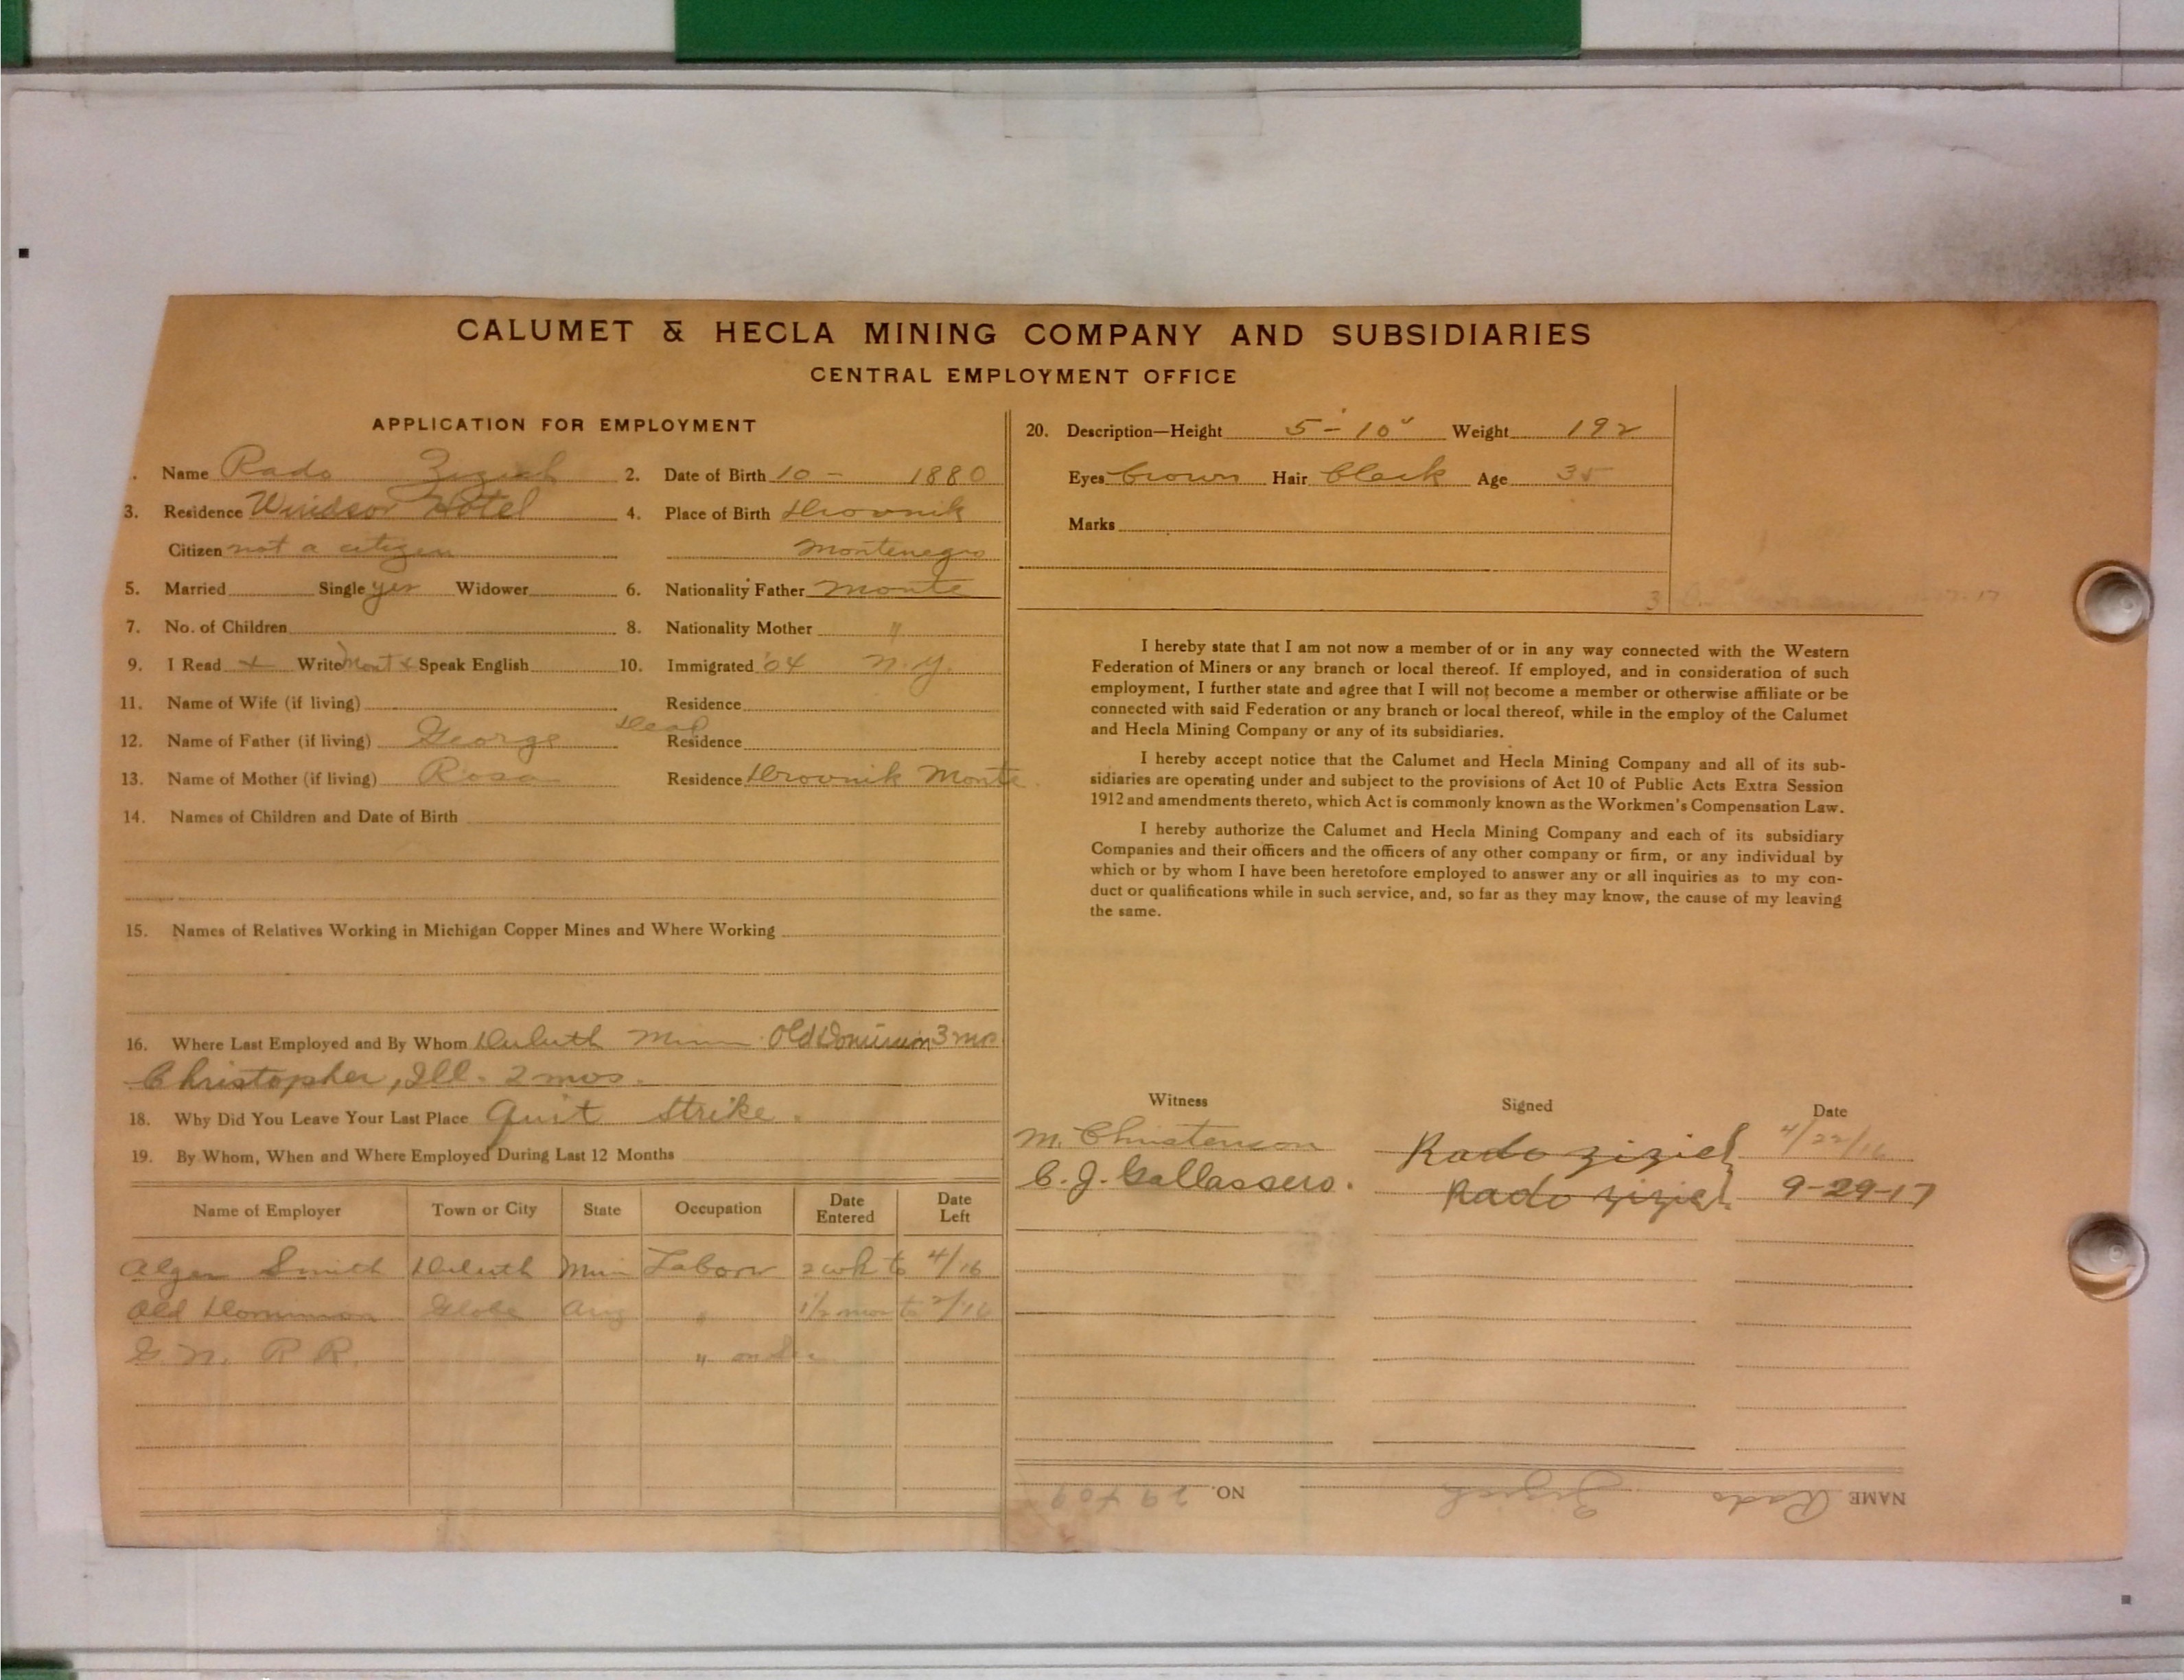 CALUMET & HECLA MINING COMPANY AND SUBSIDIARIES
CENTRAL EMPLOYMENT OFFICE
APPLICATION FOR EMPLOYMENT
. Name Rado Zizich 2. Date of Birth 10 - 1880
3. Residence Windsor Hotel 4. Place of Birth Drovnik
Citizen not a citizen Montenegro
5. Married Single yes Widower 6. Nationality Father Monte
7. No. of Children 8. Nationality Mother "
9. I Read + Write Mont + Speak English 10. Immigrated '04 N.Y.
11. Name of Wife (if living) Residence
12. Name of Father (if living) George Dead Residence
13. Name of Mother (if living) Rosa Residence Drovnik Monte.
14. Names of Children and Date of Birth
15. Names of Relatives Working in Michigan Copper Mines and Where Working
16. Where Last Employed and By Whom Duluth Minn. Old Dominion 3 mos
Christopher, Ill. 2 mos.
18. Why Did You Leave Your Last Place Quit Strike.
19. By Whom, When and Where Employed During Last 12 Months
Name of Employer Town or City State Occupation Date Entered Date Left
Alger Smith Duluth Minn Labor 2 wk to 4/16
Old Dominion Globe Ariz " 1½ mos to 2/16
G. N. R R. "
20. Description—Height 5'-10" Weight 192
Eyes brown Hair black Age 35
Marks
3
I hereby state that I am not now a member of or in any way connected with the Western
Federation of Miners or any branch or local thereof. If employed, and in consideration of such
employment, I further state and agree that I will not become a member or otherwise affiliate or be
connected with said Federation or any branch or local thereof, while in the employ of the Calumet
and Hecla Mining Company or any of its subsidiaries.
I hereby accept notice that the Calumet and Hecla Mining Company and all of its sub-
sidiaries are operating under and subject to the provisions of Act 10 of Public Acts Extra Session
1912 and amendments thereto, which Act is commonly known as the Workmen's Compensation Law.
I hereby authorize the Calumet and Hecla Mining Company and each of its subsidiary
Companies and their officers and the officers of any other company or firm, or any individual by
which or by whom I have been heretofore employed to answer any or all inquiries as to my con-
duct or qualifications while in such service, and, so far as they may know, the cause of my leaving
the same.
Witness Signed Date
M. Christenson Rado zizich 4/22/16
C. J. Gallassero. Rado zizich 9-29-17
NAME Rado Zizich NO. 29409